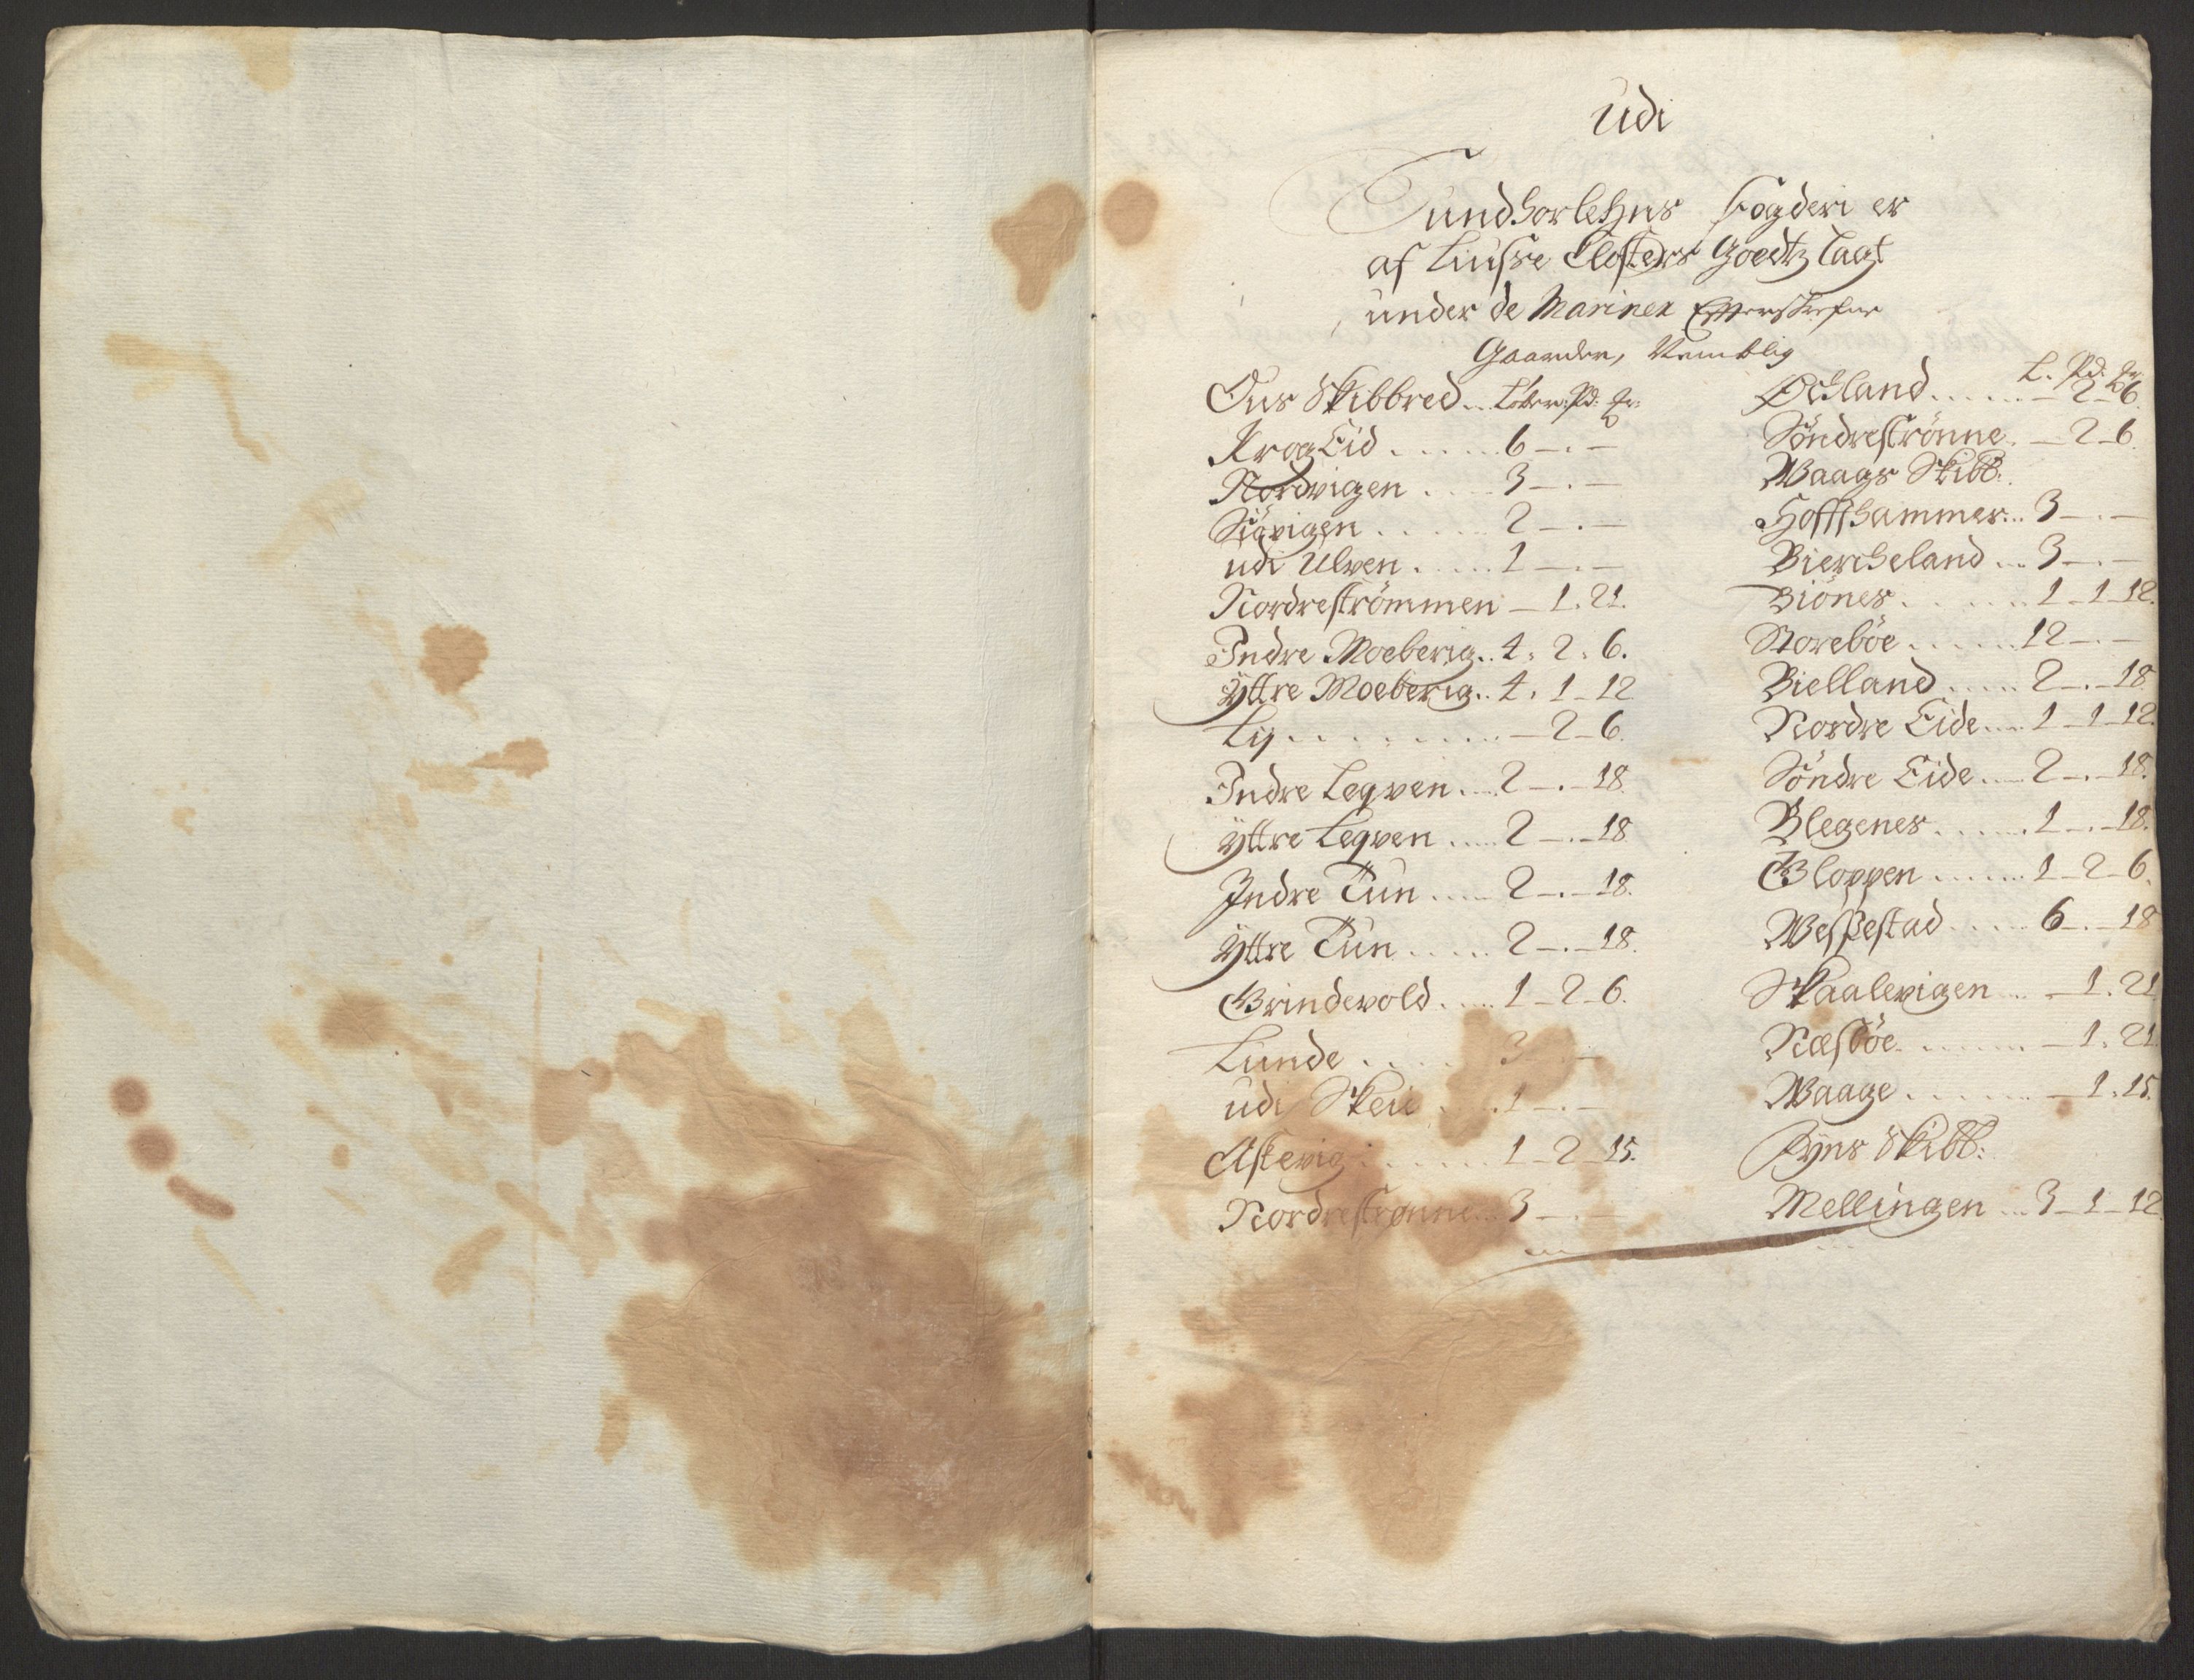 Udi
Sundhorlehns Fogderi er
af Liusse Closters Goedtz lagt
under de Mariner Effterskrefne
Gaarder, Nemblig
Ous Skibbred .. Løber: Pd: Fr:
KrogEid ..... 6 — . —
Nordvigen .... 3 — . —
Siövigen ..... 2 — . —
udi Ulven ..... 1 — . —
Nordreströmmen — 1. 21.
Indre Moeberig .. 4. 2. 6.
Yttre Moeberig .. 4. 1 — 12
Liy ........ — 2 — 6.
Indre Legven .... 2 — . — 18.
Yttre Legven .... 2 — . — 18.
Indre Tun .... 2 — . — 18.
Yttre Tun ..... 2 — . — 18.
Grindevold .... 1 — 2 — 6.
Lunde .... 3 — . —
udi Skeie .... 1 — . —
Askevig ...... 1 — 2 — 15.
Nordreströnne ... 3 — . —
L. Pd: Fr:
Øchland ..... — 2 — 6.
Söndreströnne . — 2 — 6.
Waags Skibb:
Hoffshammer ... 3 — . —
Biercheland ... 3 — . —
Biönes ..... 1 — 1 — 12.
Storebøe ..... 12 — . —
Bielland ..... 2 — . — 18
Nordre Eide ... 1 — 1 — 12.
Söndre Eide .... 2 — . — 18.
Blegenes ...... 1 — . — 18.
Gloppen ...... 1 — 2 — 6.
Wespestad ..... 6 — . — 18
Skaalevigen ... — 1. 21
Næsböe ...... — 1. 21.
Waage ...... — 1. 15.
Fyns Skibb:
Mellingen ... 3 — 1 — 12.